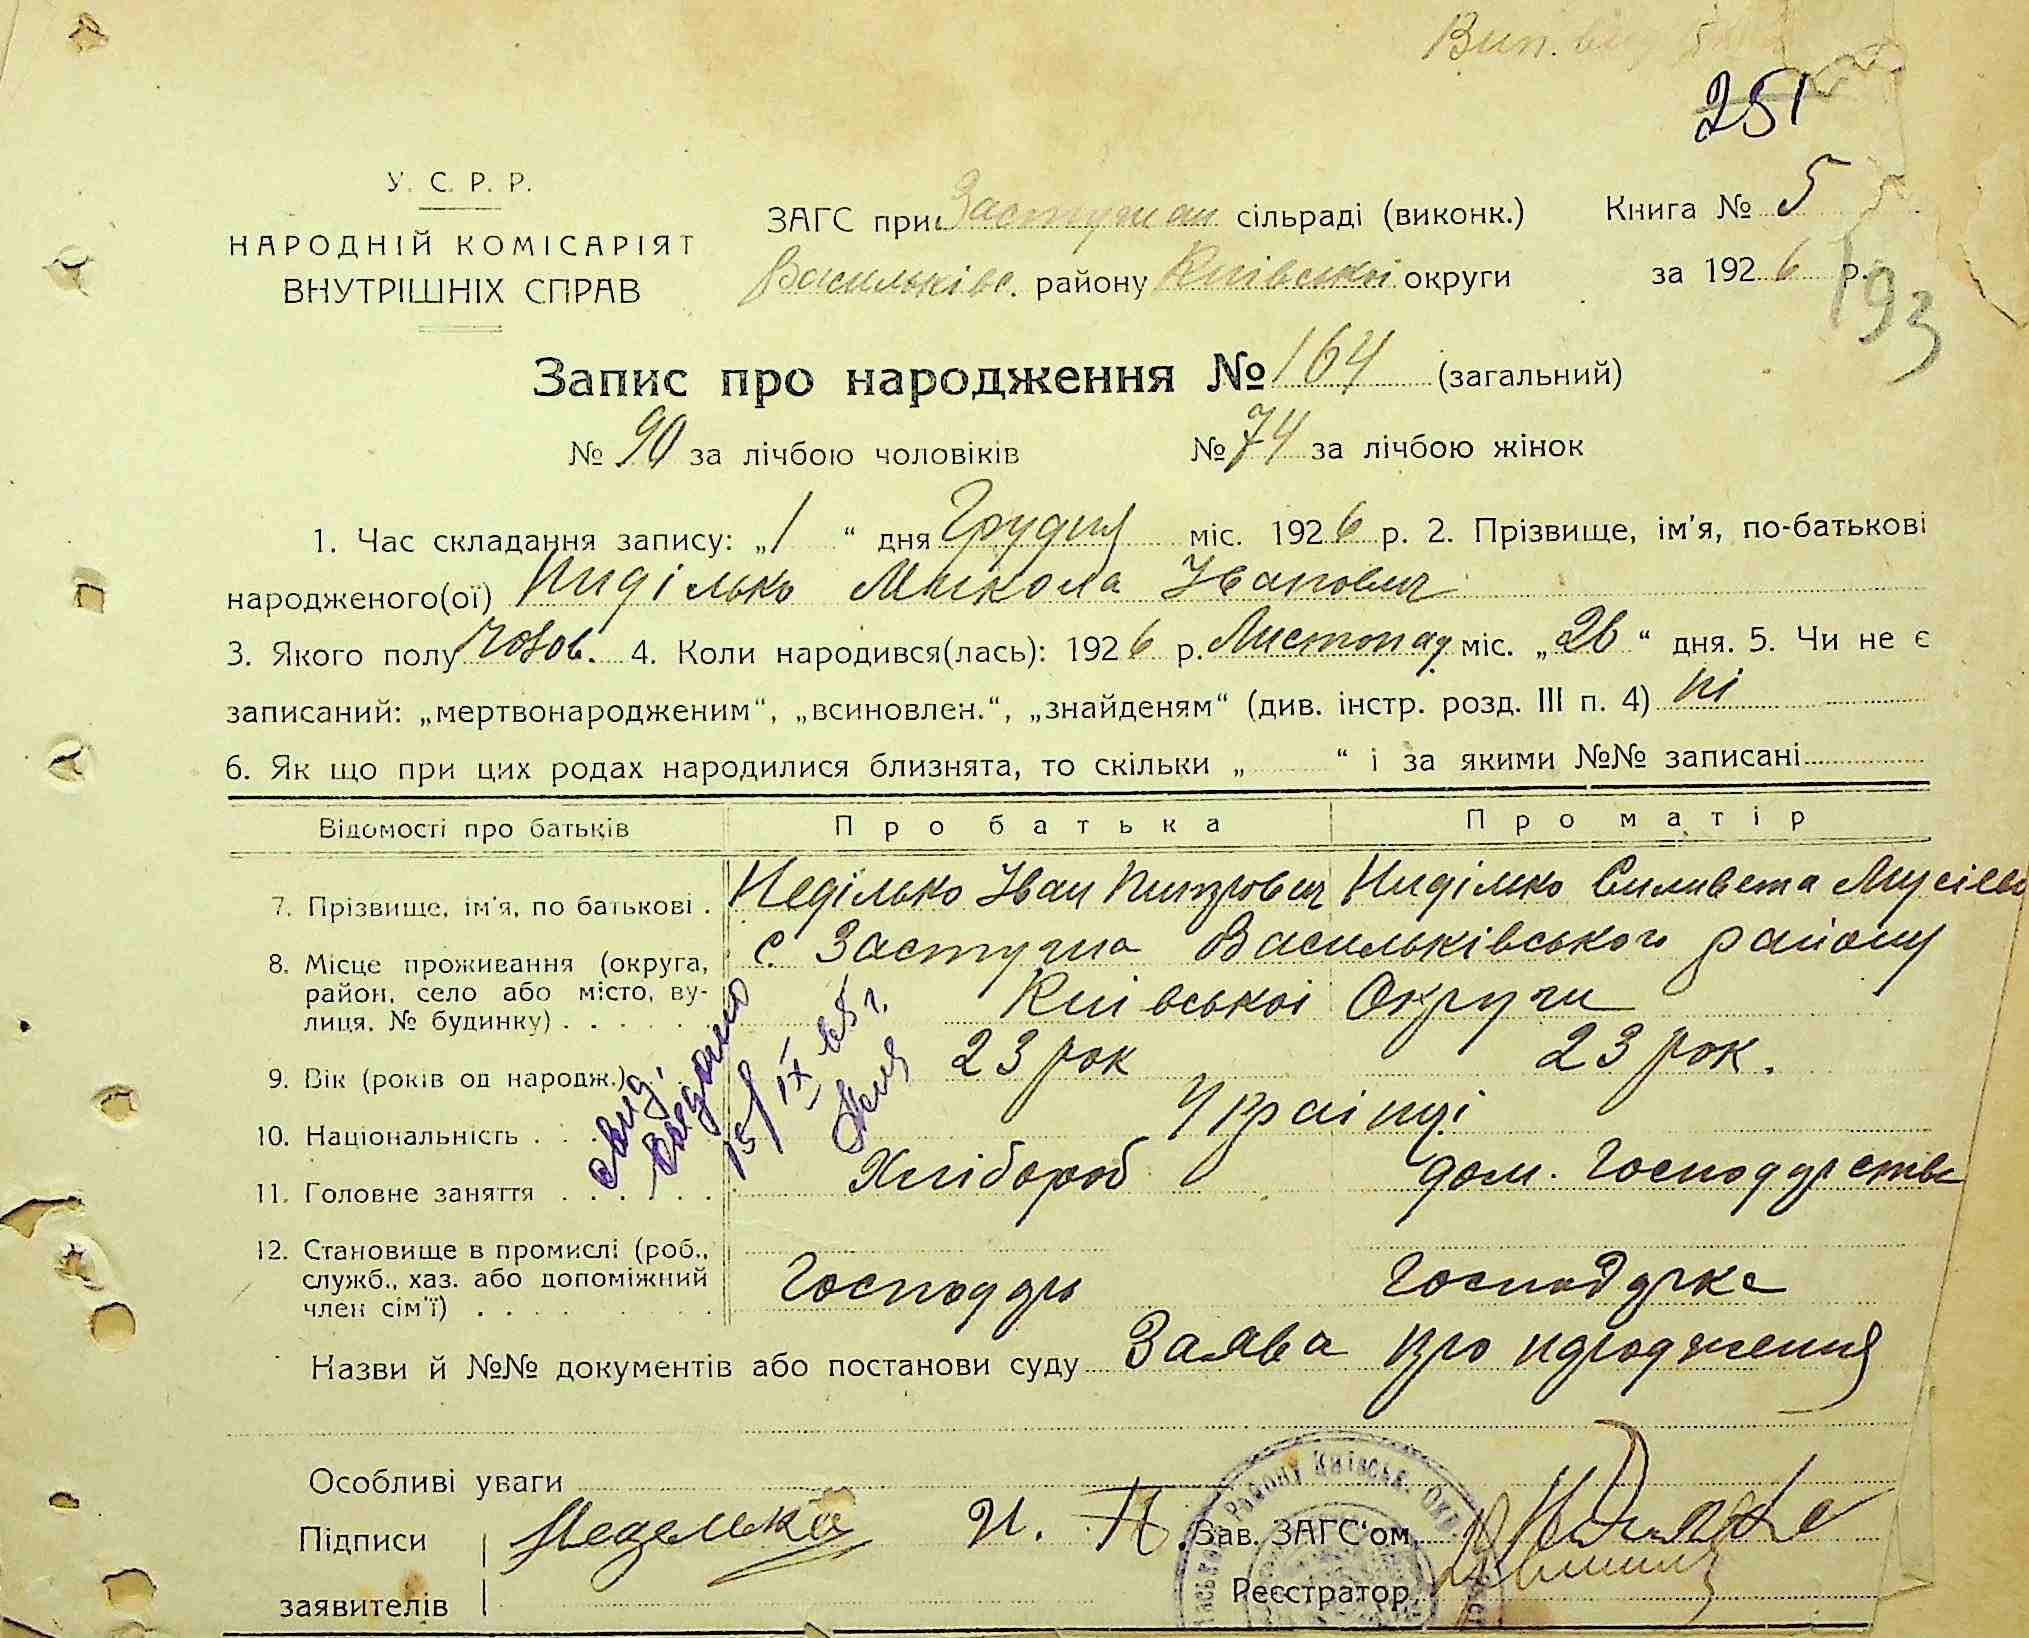 Вип.
251
У. С. Р. Р.
НАРОДНІЙ КОМІСАРІЯТ
ВНУТРІШНІХ СПРАВ
ЗАГС при Застугнан сільраді (виконк.)
Васильківс. району Київської округи
Книга № 5
за 1926 р.
193
Запис про народження № 164 (загальний)
№ 90 за лічбою чоловіків № 74 за лічбою жінок
1. Час складання запису: „1“ дня Грудня міс. 1926 р. 2. Прізвище, ім'я, по-батькові
народженого(ої) Ниділько Микола Іванович
3. Якого полу чолов. 4. Коли народився(лась): 1926 р. Листопад міс. „26“ дня. 5. Чи не є
записаний: „мертвонародженим“, „всиновлен.“, „знайденям“ (див. інстр. розд. III п. 4) ні
6. Як що при цих родах народилися близнята, то скільки „ “ і за якими №№ записані
Відомості про батьків Про батька Про матір
7. Прізвище, ім'я, по батькові . Неділько Іван Питрович Ниділько Силивета Мусіев
8. Місце проживання (округа, район, село або місто, вулиця. № будинку) . . . . . с. Застугна Васильківського району
Київської Округи
9. Вік (років од народж.) 23 рок 23 рок.
10. Національність . . . Українці
11. Головне заняття . . . . . . Хлібороб дом. Господарства
12. Становище в промислі (роб., служб., хаз. або допоміжний член сім'ї) . . . . . . . Господарь Господарка
свид.
видано
15/IX 65 г.
Назви й №№ документів або постанови суду Заява про народження
Особливі уваги
Підписи
заявителів
Неделько И. П.
Зав. ЗАГС'ом
Реєстратор
Району Київськ. Окр